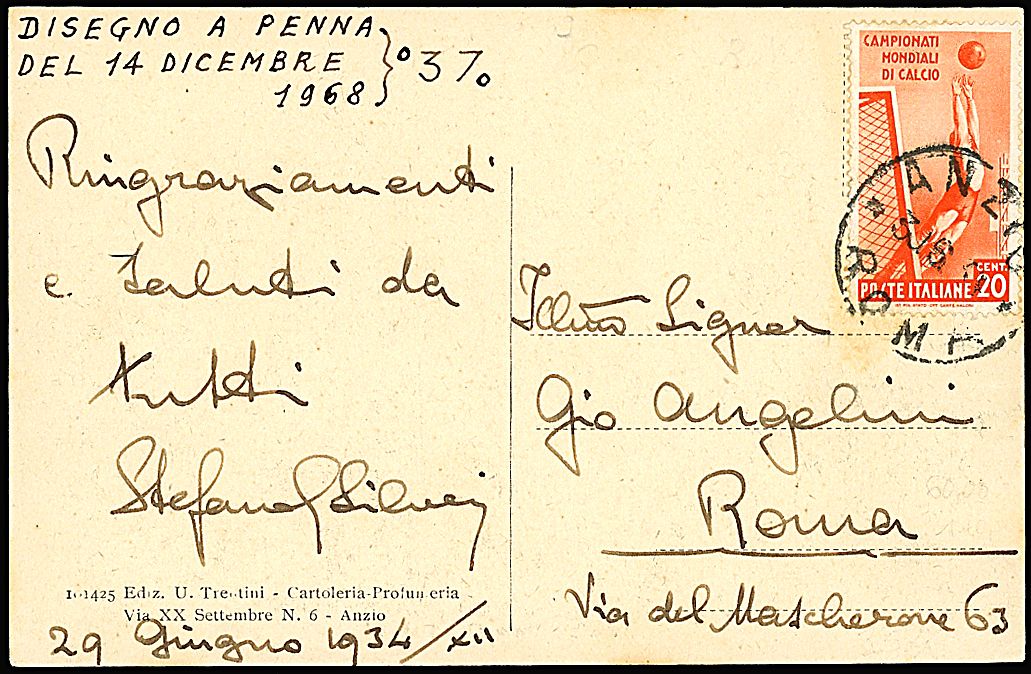 DISEGNO A PENNA
DEL 14 DICEMBRE
1968
°37°
Ringraziamenti
e saluti da
tutti
Stefano Silvij
101425 Ediz. U. Trentini - Cartoleria-Profumeria
Via XX Settembre N. 6 - Anzio
29 Giugno 1934/XII
CAMPIONATI
MONDIALI
DI CALCIO
CENT.
POSTE ITALIANE 20
* ANZIO *
ROMA
Illmo Signor
Gio Angelini
Roma
Via del Mascherone 63